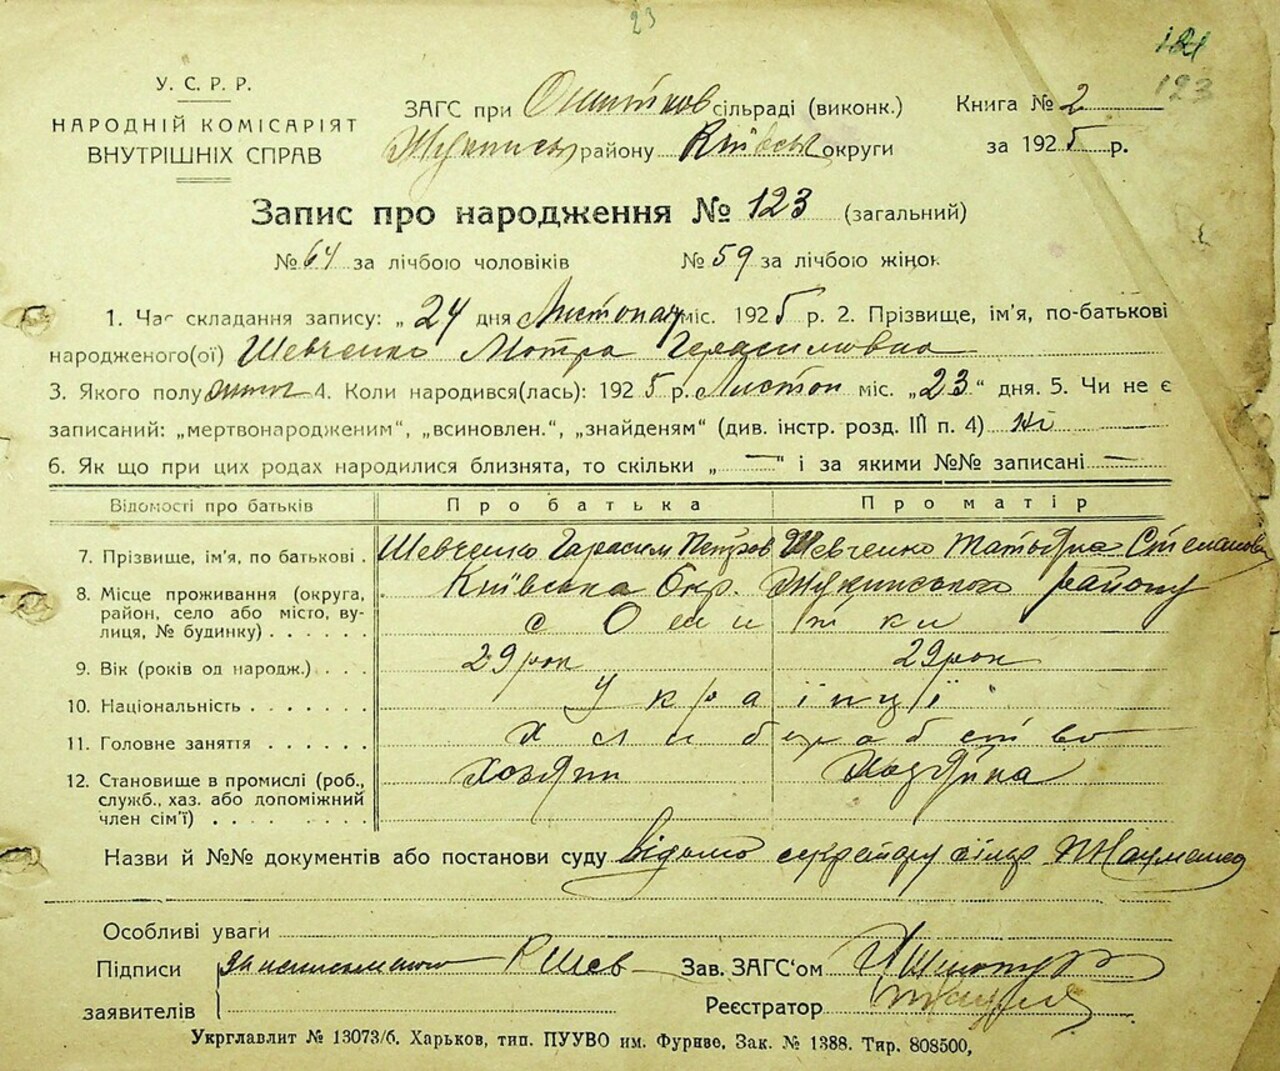 23
121
123
У. С. Р. Р.
НАРОДНІЙ КОМІСАРІЯТ
ВНУТРІШНІХ СПРАВ
ЗАГС при Ошитков сільраді (виконк.)
району Київськ округи
Книга № 2
за 1925 р.
Запис про народження № 123 (загальний)
№ 64 за лічбою чоловіків № 59 за лічбою жінок
1. Час складання запису: „24 дня Листопад міс. 1925 р. 2. Прізвище, ім'я, по-батькові
народженого(ої) Шевченко Мотра Герасимовна
3. Якого полу жіноч 4. Коли народився(лась): 1925 р. Листоп міс. „23“ дня. 5. Чи не є
записаний: „мертвонародженим“, „всиновлен.“, „знайденям“ (див. інстр. розд. III п. 4) Ні
6. Як що при цих родах народилися близнята, то скільки „—“ і за якими №№ записані —
Відомості про батьків Про батька Про матір
7. Прізвище, ім'я, по батькові . Шевченко Гарасим Петров Шевченко Татьяна Степанова
8. Місце проживання (округа, Київська Окр. Жукинського району
район, село або місто, ву- с Ошитки
лиця, № будинку) . . . . . .
9. Вік (років од народж.) . . . 29 рок 29 рок
10. Національність . . . . . . . Українці
11. Головне заняття . . . . . . Хлиборобство
12. Становище в промислі (роб., Хозяин Хозяйка
служб., хаз. або допоміжний
член сім'ї) . . . . . . . .
Назви й №№ документів або постанови суду Відомо секретару сільр
Особливі уваги
Підписи К Шев Зав. ЗАГС'ом
заявителів Реєстратор
Укрглавлит № 13073/б. Харьков, тип. ПУУВО им. Фрунзе, Зак. № 1388. Тир. 808500,